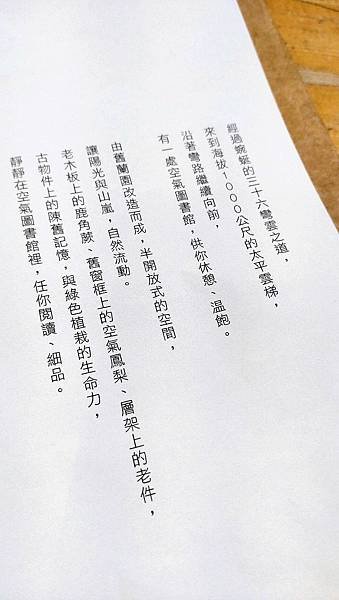 經過蜿蜒的三十六彎雲之道，
來到海拔1000公尺的太平雲梯，
沿著彎路繼續向前，
有一處空氣圖書館，供你休憩、温飽。
由舊蘭園改造而成，半開放式的空間，
讓陽光與山嵐，自然流動。
老木板上的鹿角蕨、舊窗框上的空氣鳳梨、層架上的老件，
古物件上的陳舊記憶，與綠色植栽的生命力，
靜靜在空氣圖書館裡，任你閱讀、細品。